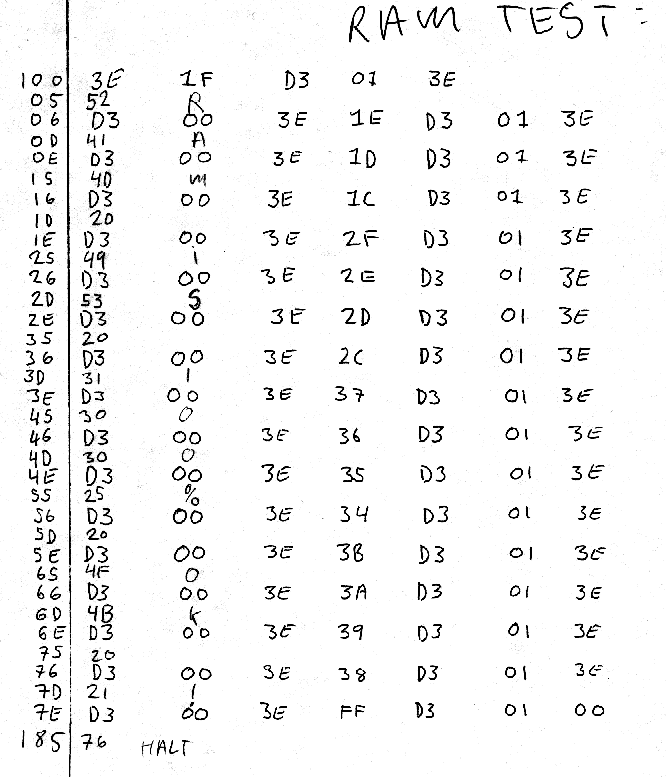 RAM TEST:
100 3E 1F D3 01 3E
05 52 R
06 D3 00 3E 1E D3 01 3E
0D 41 A
0E D3 00 3E 1D D3 01 3E
15 4D m
16 D3 00 3E 1C D3 01 3E
1D 20
1E D3 00 3E 2F D3 01 3E
25 49 I
26 D3 00 3E 2E D3 01 3E
2D 53 S
2E D3 00 3E 2D D3 01 3E
35 20
36 D3 00 3E 2C D3 01 3E
3D 31 1
3E D3 00 3E 37 D3 01 3E
45 30 0
46 D3 00 3E 36 D3 01 3E
4D 30 0
4E D3 00 3E 35 D3 01 3E
55 25 %
56 D3 00 3E 34 D3 01 3E
5D 20
5E D3 00 3E 3B D3 01 3E
65 4F O
66 D3 00 3E 3A D3 01 3E
6D 4B K
6E D3 00 3E 39 D3 01 3E
75 20
76 D3 00 3E 38 D3 01 3E
7D 21 !
7E D3 00 3E FF D3 01 00
185 76 HALT